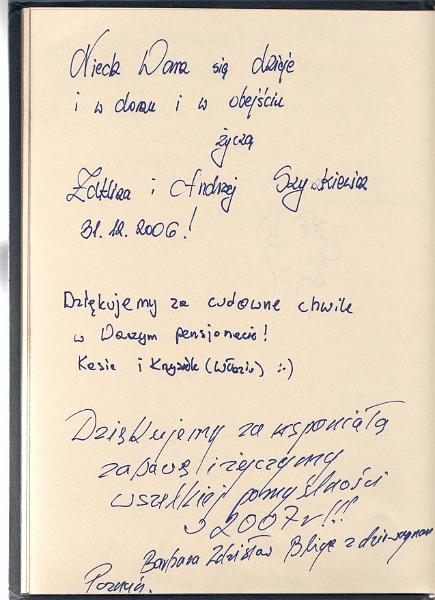 Niech Wam się dzieje
i w domu i w obejściu
życzą
i Andrzej
31.12.2006!
Dziękujemy za cudowne chwile
w Waszym pensjonacie!
Kasia i Krzysiek (Włodziu) :-)
Dziękujemy za wspaniałą
zabawę i życzymy
wszelkiej pomyślności
w 2007r!!!
Barbara Zdzisław z
Poznań.